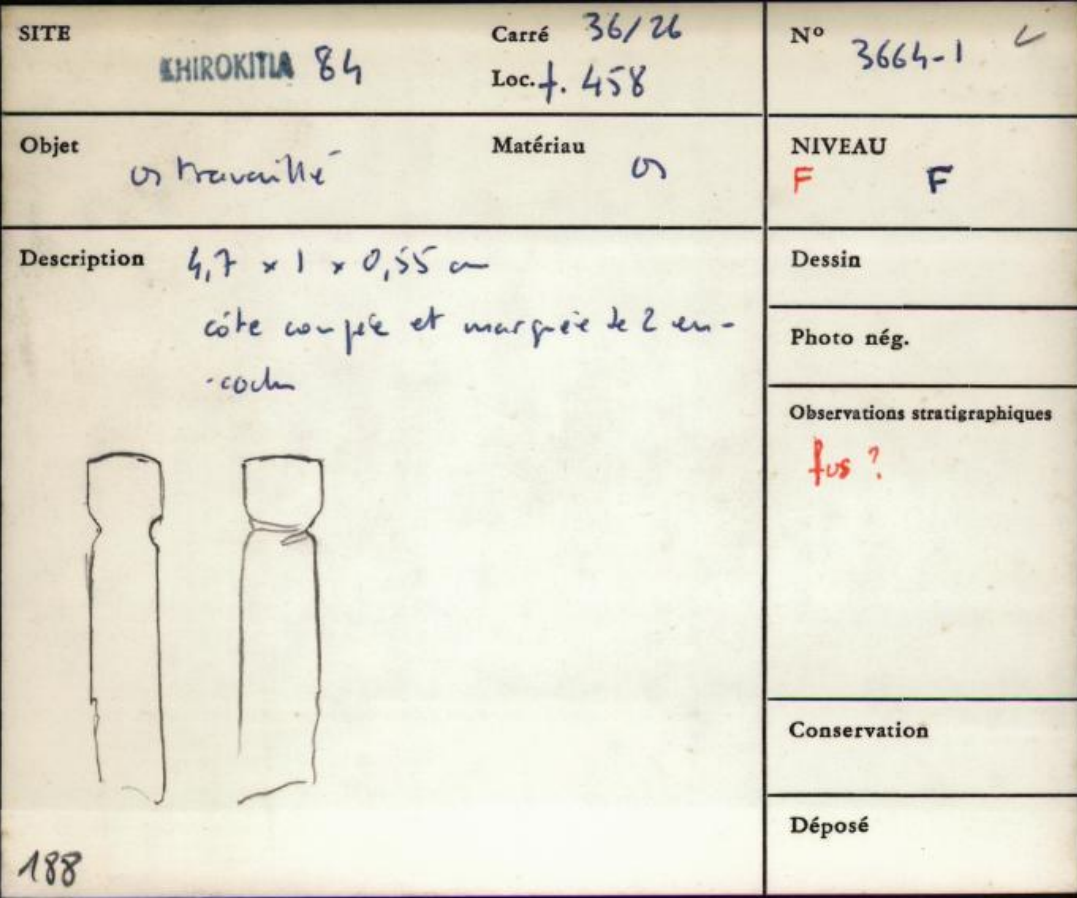 SITE
KHIROKITIA 84
Carré 36/26
Loc. f. 458
N° 3664-1
Objet
os travaillé
Matériau
os
NIVEAU
F F
Description 4,7 x 1 x 0,55 cm
côte coupée et marquée de 2 en-
-coches
Dessin
Photo nég.
Observations stratigraphiques
fus ?
Conservation
Déposé
188